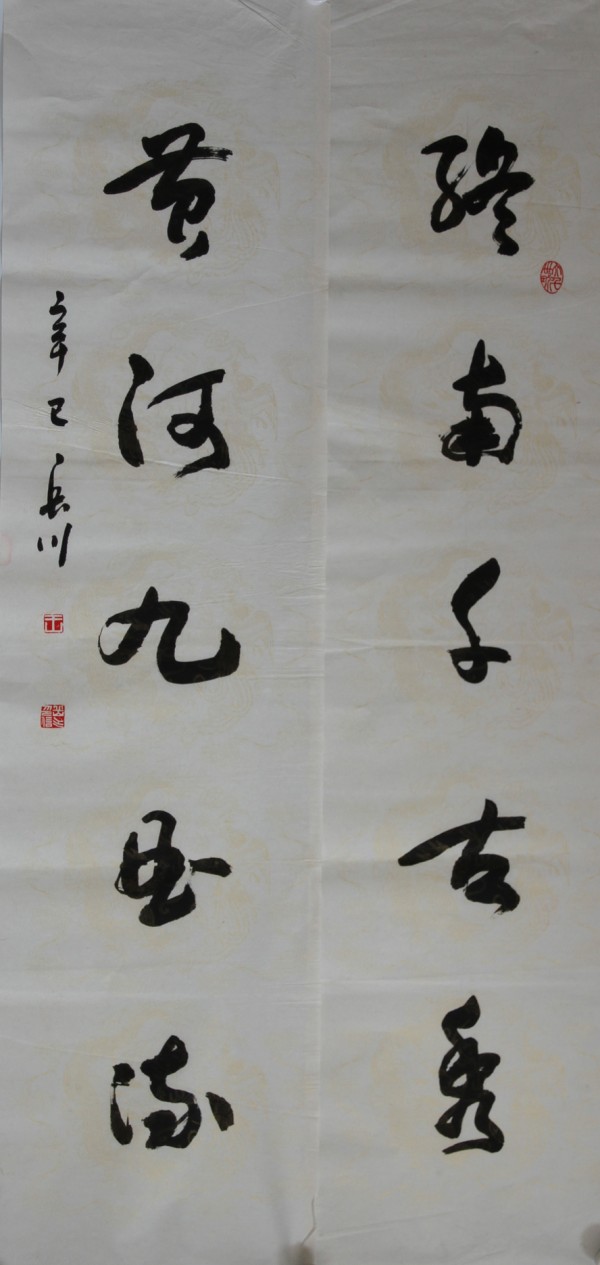 終南千古秀
黄河九曲流
辛巳岳川
王